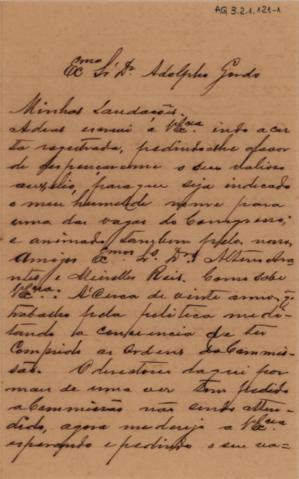 AG 3.2.1.121-1
Exmo Sr Dr Adolpho Gordo
Minhas Saudações.
escrevi a V Excia indo a car
ta registrada, pedindo-lhe o favor
de dispençar-me o seu valioso
auxilio, para que seja indicado
o meu humilde nome para
uma das vagas do Congresso;
e animado tambem pelo nosso
Amigos Exmos Srs Drs Altino Aran
tes e Meirelles Reis. Como sabe
V Excia A cerca de vinte annos, q
trabalho pela politica
a conciencia de ter
Comprido as Ordens da Commis-
são. O directorio daqui por
mais de uma vez tem pedido
a Commissão não sendo atten-
dido, agora me dirijo a V Excia
esperando e pedindo o seu va-